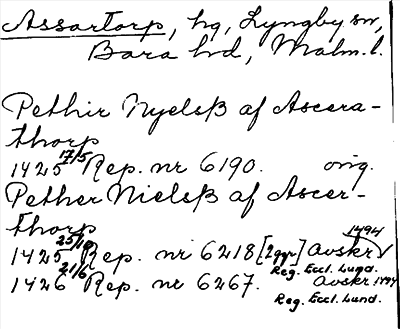 Assartorp, hg, Lyngby sn,
Bara hd, Malm. l.
Pethir Nyelsß af Ascera-
thorp
1425 17/5 Rep. nr 6190. orig.
Pether Nielsß af Ascer-
thorp
1425 25/10 Rep. nr 6218 [2ggr] Avskr 1494
Reg. Eccl. Lund.
1426 21/6 Rep. nr 6267. Avskr 1494
Reg. Eccl. Lund.